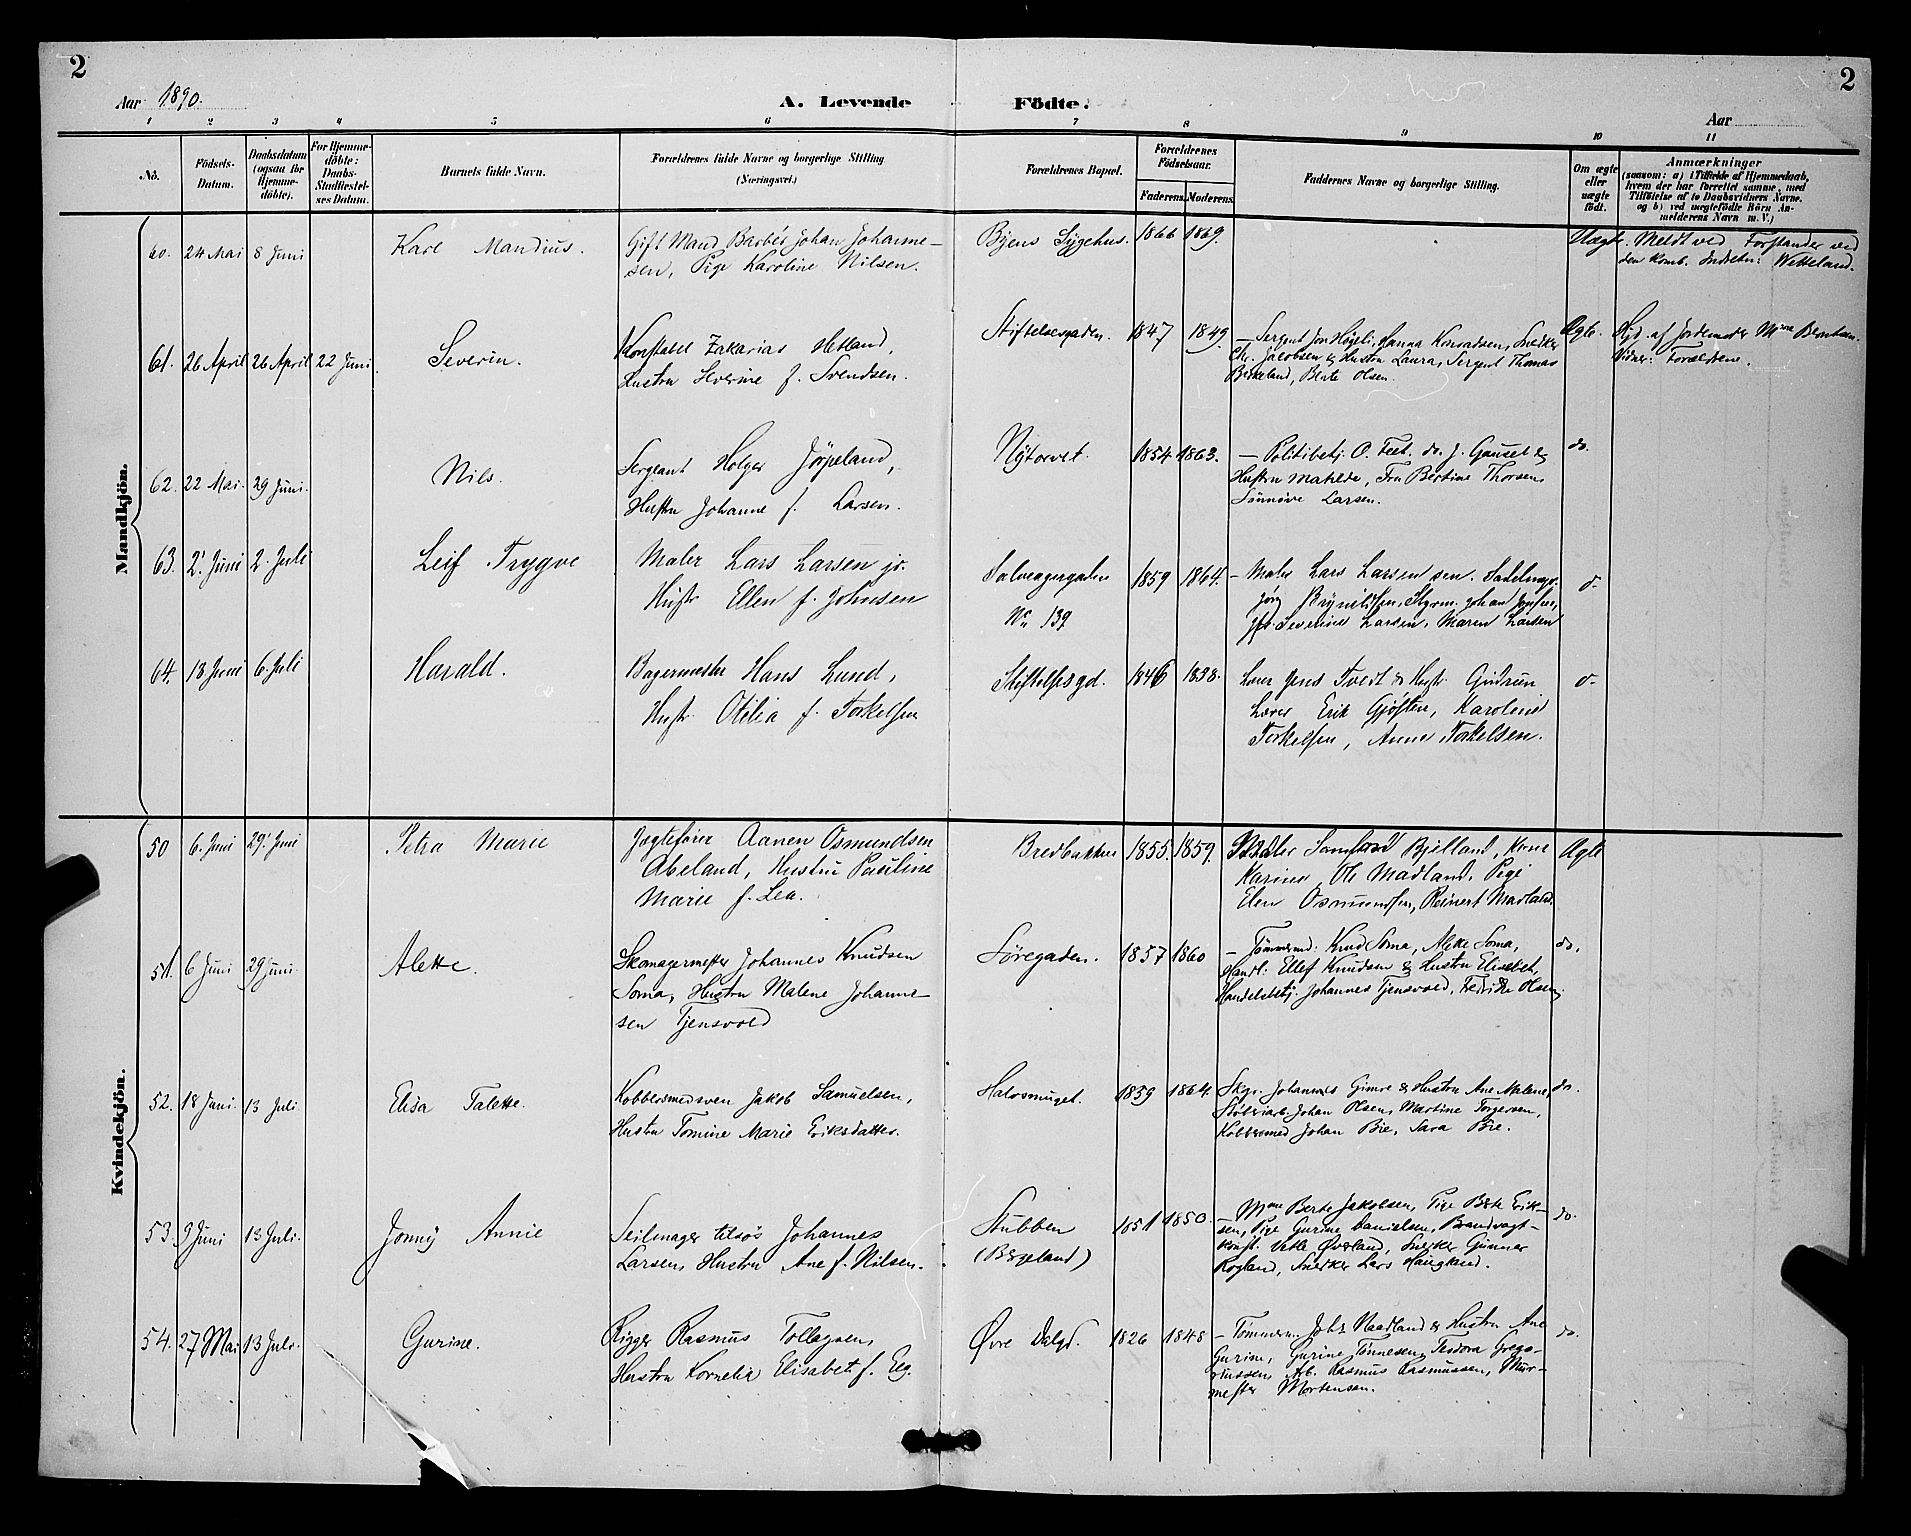 2
2
Aar 1890.
A. Levende Födte.
Aar
1 2 3 4 5 6 7 8 9 10 11
No.
Födsels-
Datum.
Daabsdatum
(ogsaa for
Hjemme-
döbte).
For Hjemme-
döbte:
Daabs-
Stadfæstel-
ses Datum.
Barnets fulde Navn.
Forældrenes fulde Navne og borgerlige Stilling
(Næringsvei.)
Forældrenes Bopæl.
Forældrenes
Födselsaar.
Faderens. Moderens.
Faddernes Navne og borgerlige Stilling.
Om ægte
eller
uægte
födt.
Anmærkninger
(saasom: a) i Tilfælde af Hjemmedaab,
hvem der har forrettet samme, med
Tilföielse af to Daabsvidners Navne,
og b) ved uægtefödte Börn An-
melderens Navn m. V.)
Mandkjön.
60. 24 Mai 8 Juni
Karl Mandius.
Gift Mand Johan Johanne-
sen, Pige Karoline Nilsen.
Byens Sygehus. 1866 1869.
Uægte. Meldt ved Forstander ved
den komb. Indretn: Wetteland.
61. 26 April 26 April 22 Juni
Severin.
Konstabel Zakarias Hetland,
Hustru Severine f. Svendsen.
Stiftelsesgaden. 1847 1849.
– Sergent Jon Høgeli, Hanna Konradsen, Snedker
Chr. Jacobsen & Hustru Laura, Sergent Thomas
Birkeland, Berte Olsen.
Ægte. Hjd. af Jordemoder Mme Berntsen.
Vidner: Forældrene.
62. 22 Mai. 29 Juni.
Nils.
Sergeant Holger Jørpeland,
Hustru Johanne f. Larsen.
Nytorvet. 1854 1863.
– Politibetj. O. Teet. do. J. Gausel &
Hustru Matilde, Fru Bertine Thorsen,
Sønnøve Larsen.
do.
63. 2. Juni 2. Juli
Leif Trygve
Maler Lars Larsen jr.
Hustr Ellen f. Johnsen
Salvagergaden
No 139
1859 1864.
– Maler Lars Larsen sen. Sadelmgr.
Jørg Brynildsen, Styrm. Johan
Severine Larsen, Maren Larsen
d-
64. 18 Juni 6. Juli
Harald.
Bagermester Hans Lund,
Hustr Otilia f. Torkelsen
Stiftelsesgd. 1846 1858.
Lærer Jens Tvedt & Hustr Gudrun
Lærer Erik Gjøsten, Karoline
Torkelsen, Anna Torkelsen.
d-
Kvindekjön.
50 6. Juni 29. Juni
Petra Marie
Jagtefører Aanen Osmundsen
Abeland, Hustru Pauline
Marie f. Lea.
Bredbakken 1855. 1859.
Bjelland, Kone
Karine, Ole Madland, Pige
Elen Osmundsen, Reinert Madland.
Ægte
51. 6 Juni 29 Juni
Alette.
Skomagermester Johannes Knudsen
Soma, Hustru Malene Johanne-
sen Tjensvold
Søregaden. 1857 1860
– Tømmerm: Knud Soma, Alette Soma,
Handl: Ellef Knudsen & Hustru Elisabet,
Handelsbetj. Johannes Tjensvold, Fredrikke Olsen.
do.
52. 18 Juni. 13 Juli
Elisa Talette.
Kobbersmedsven Jakob Samuelsen,
Hustru Tomine Marie Eriksdatter.
Halvsmuget. 1859 1864.
Skgr. Johannes Gimre & Hustru Ane Malene,
Støberiarb. Johan Olsen, Martine Torgersen,
Kobbersmed Johan Bøe, Sara Bøe.
do.
53. 9 Juni 13 Juli.
Jonny Annie
Seilmager tilsøs Johannes
Larsen, Hustru Ane f. Nilsen.
Stubben
(Bergeland)
1851 1850.
– Mme Berte Jakobsen, Pige Berte Erik-
sen, Pige Gurine Danielsen, Brandvagt-
konst. Vetle Øverland, Snedker Gunnar
Rogland, Snedker Lars Haugland.
do.
54. 27 Mai 13 Juli.
Gurine.
Rigger Rasmus Tollagsen,
Hustru Kornelia Elisabet f. Eeg.
Øvre Dalgd. 1826 1848
– Tømmerm. Johs Naadland & Hustru Ane
Gurine, Gurine Tønnesen, Teodora Grego-
riussen, Arb. Rasmus Rasmussen, Mur-
mester Mortensen.
do.